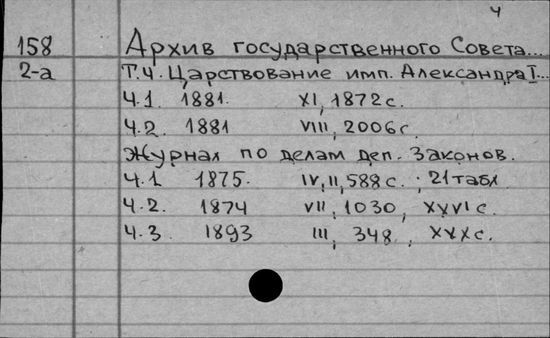 4
158 Архив государственного Совета...
2-а Т.4. Царствование имп. Александра I...
Ч.1. 1881. XI, 1872 с.
Ч.2. 1881 VIII, 2006 с.
Журнал по делам деп. Законов.
Ч.1 1875. IV, II, 588 с. ; 21 табл
Ч.2. 1874 VII, 1030, XXVI с.
Ч.3. 1893 III, 348, XXX с.